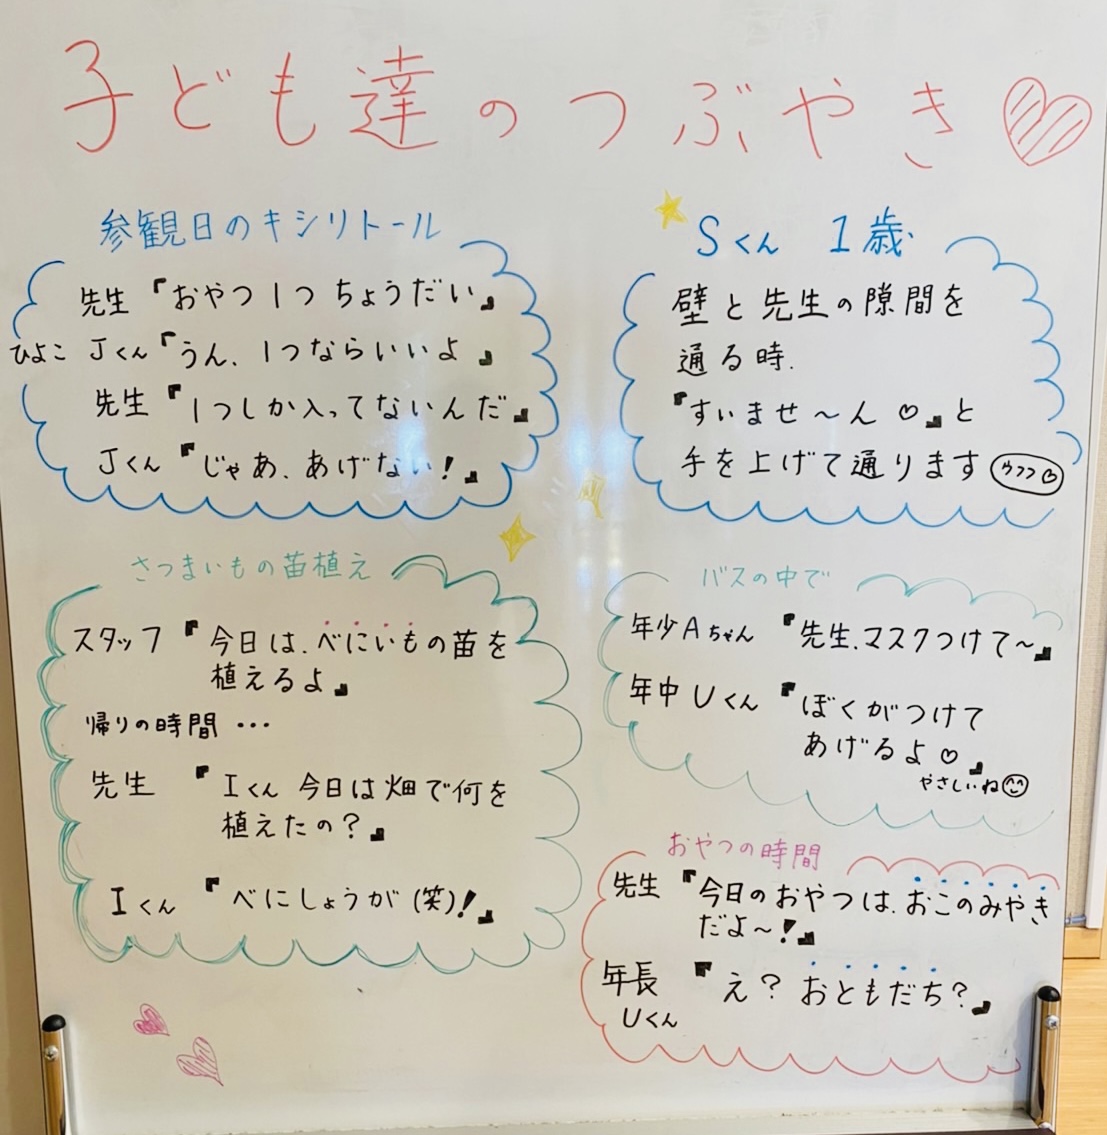 子ども達のつぶやき
参観日のキシリトール
先生『おやつ1つちょうだい』
ひよこ Jくん『うん、1つならいいよ』
先生『1つしか入ってないんだ』
Jくん『じゃあ、あげない!』
Sくん 1歳
壁と先生の隙間を
通る時、
『すいませ〜ん♡』と
手を上げて通ります ウフフ♡
さつまいもの苗植え
スタッフ『今日は、べにいもの苗を
植えるよ』
帰りの時間…
先生『Iくん 今日は畑で何を
植えたの?』
Iくん『べにしょうが(笑)!』
バスの中で
年少Aちゃん『先生、マスクつけて〜』
年中Uくん『ぼくがつけて
あげるよ♡』
やさしいね
おやつの時間
先生『今日のおやつは、おこのみやき
だよ〜!』
年長『え? おともだち?』
Uくん